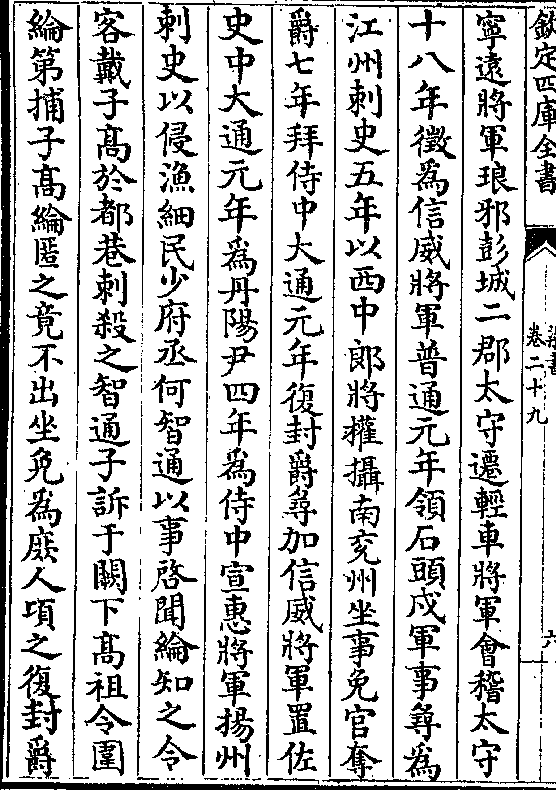 欽定四庫全書
梁書
卷二十九
六
寧遠將軍琅邪彭城二郡太守遷輕車將軍會稽太守
十八年徵為信威將軍普通元年領石頭戍軍事尋為
江州刺史五年以西中郎將權攝南兖州坐事免官奪
爵七年拜侍中大通元年復封爵尋加信威將軍置佐
史中大通元年爲丹陽尹四年爲侍中宣惠將軍揚州
刺史以侵漁細民少府丞何智通以事啓聞綸知之令
客戴子髙於都巷刺殺之智通子訴于闕下髙祖令圍
綸第捕子髙綸匿之竟不出坐免為庶人頃之復封爵